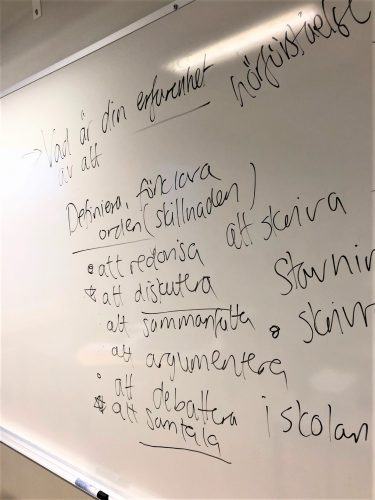 → Vad är din erfarenhet
av att
hörförståelse
Definiera, förklara
orden (skillnaden)
att redovisa
att diskutera
att sammanfatta
att argumentera
att debattera
att samtala
att skriva
Stavnin
skriv
i skolan